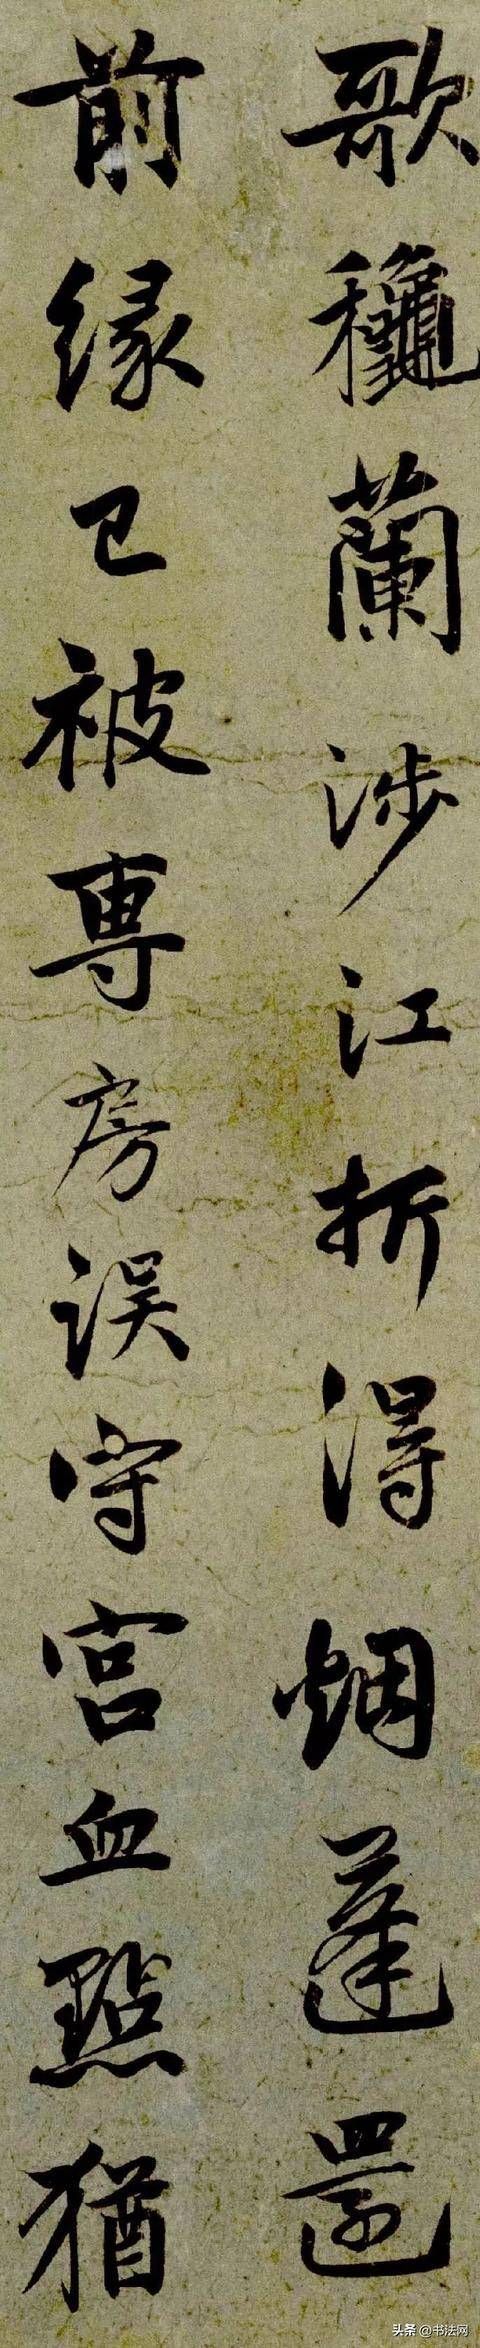 歌穐蘭涉江折得烟蓬還
前緣已被專房誤守宮血點猶
头条 @书法网